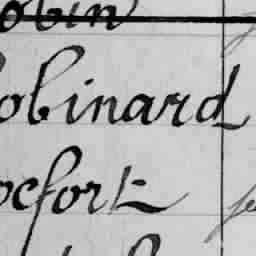 obin
obinard
ocfort